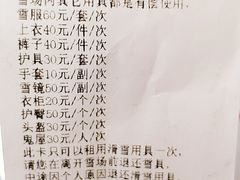 雪场内其它用具都是有偿使用。
雪服60元/套/次
上衣40元/件/次
裤子40元/件/次
护具30元/套/次
手套10元/副/次
雪镜50元/副/次
衣柜20元/个/次
护臀50元/个/次
头盔30元/个/次
鬼屋30元/人/次
此卡只可以租用滑雪用具一次，
请您在离开雪场前退还雪具，
中途因个人原因退还滑雪用具